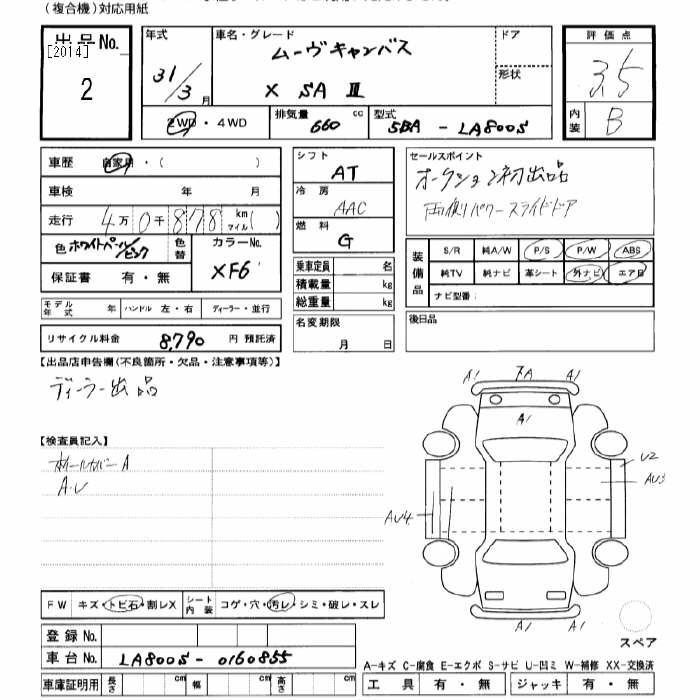 (複合機)対応用紙
出品No.
[2014]
2
年式
31/3月
車名・グレード
ムーヴキャンバス
X SA Ⅲ
ドア
形状
評価点
3.5
内装
B
2WD・4WD
排気量 660 cc
型式 5BA - LA800S
車歴 自家用・( )
車検 年 月
走行 4万0千878 km マイル( )
色 ホワイトパール/ピンク
色替
カラーNo.
XF6
保証書 有・無
モデル年式 年 ハンドル 左・右 ディーラー・並行
リサイクル料金 8,790 円 預託済
シフト
AT
冷房
AAC
燃料
G
乗車定員 名
積載量 kg
総重量 kg
名変期限
月 日
セールスポイント
オークション初出品
両側パワースライドドア
装備品
S/R 純A/W P/S P/W ABS
純TV 純ナビ 革シート 外ナビ エアB
ナビ型番:
後日品
【出品店申告欄(不良箇所・欠品・注意事項等)】
ディーラー出品
【検査員記入】
ホイールカバーA
A・U
A1 A A1
A1
U2
AU3
AU4
A1 A1
スペア
FW キズ・トビ石・割レX
シート内装 コゲ・穴・汚レ・シミ・破レ・スレ
登録No.
車台No. LA800S-0160855
車庫証明用 長さ cm 幅 cm 高さ cm
A-キズ C-腐食 E-エクボ S-サビ U-凹ミ W-補修 XX-交換済
工具 有・無 ジャッキ 有・無